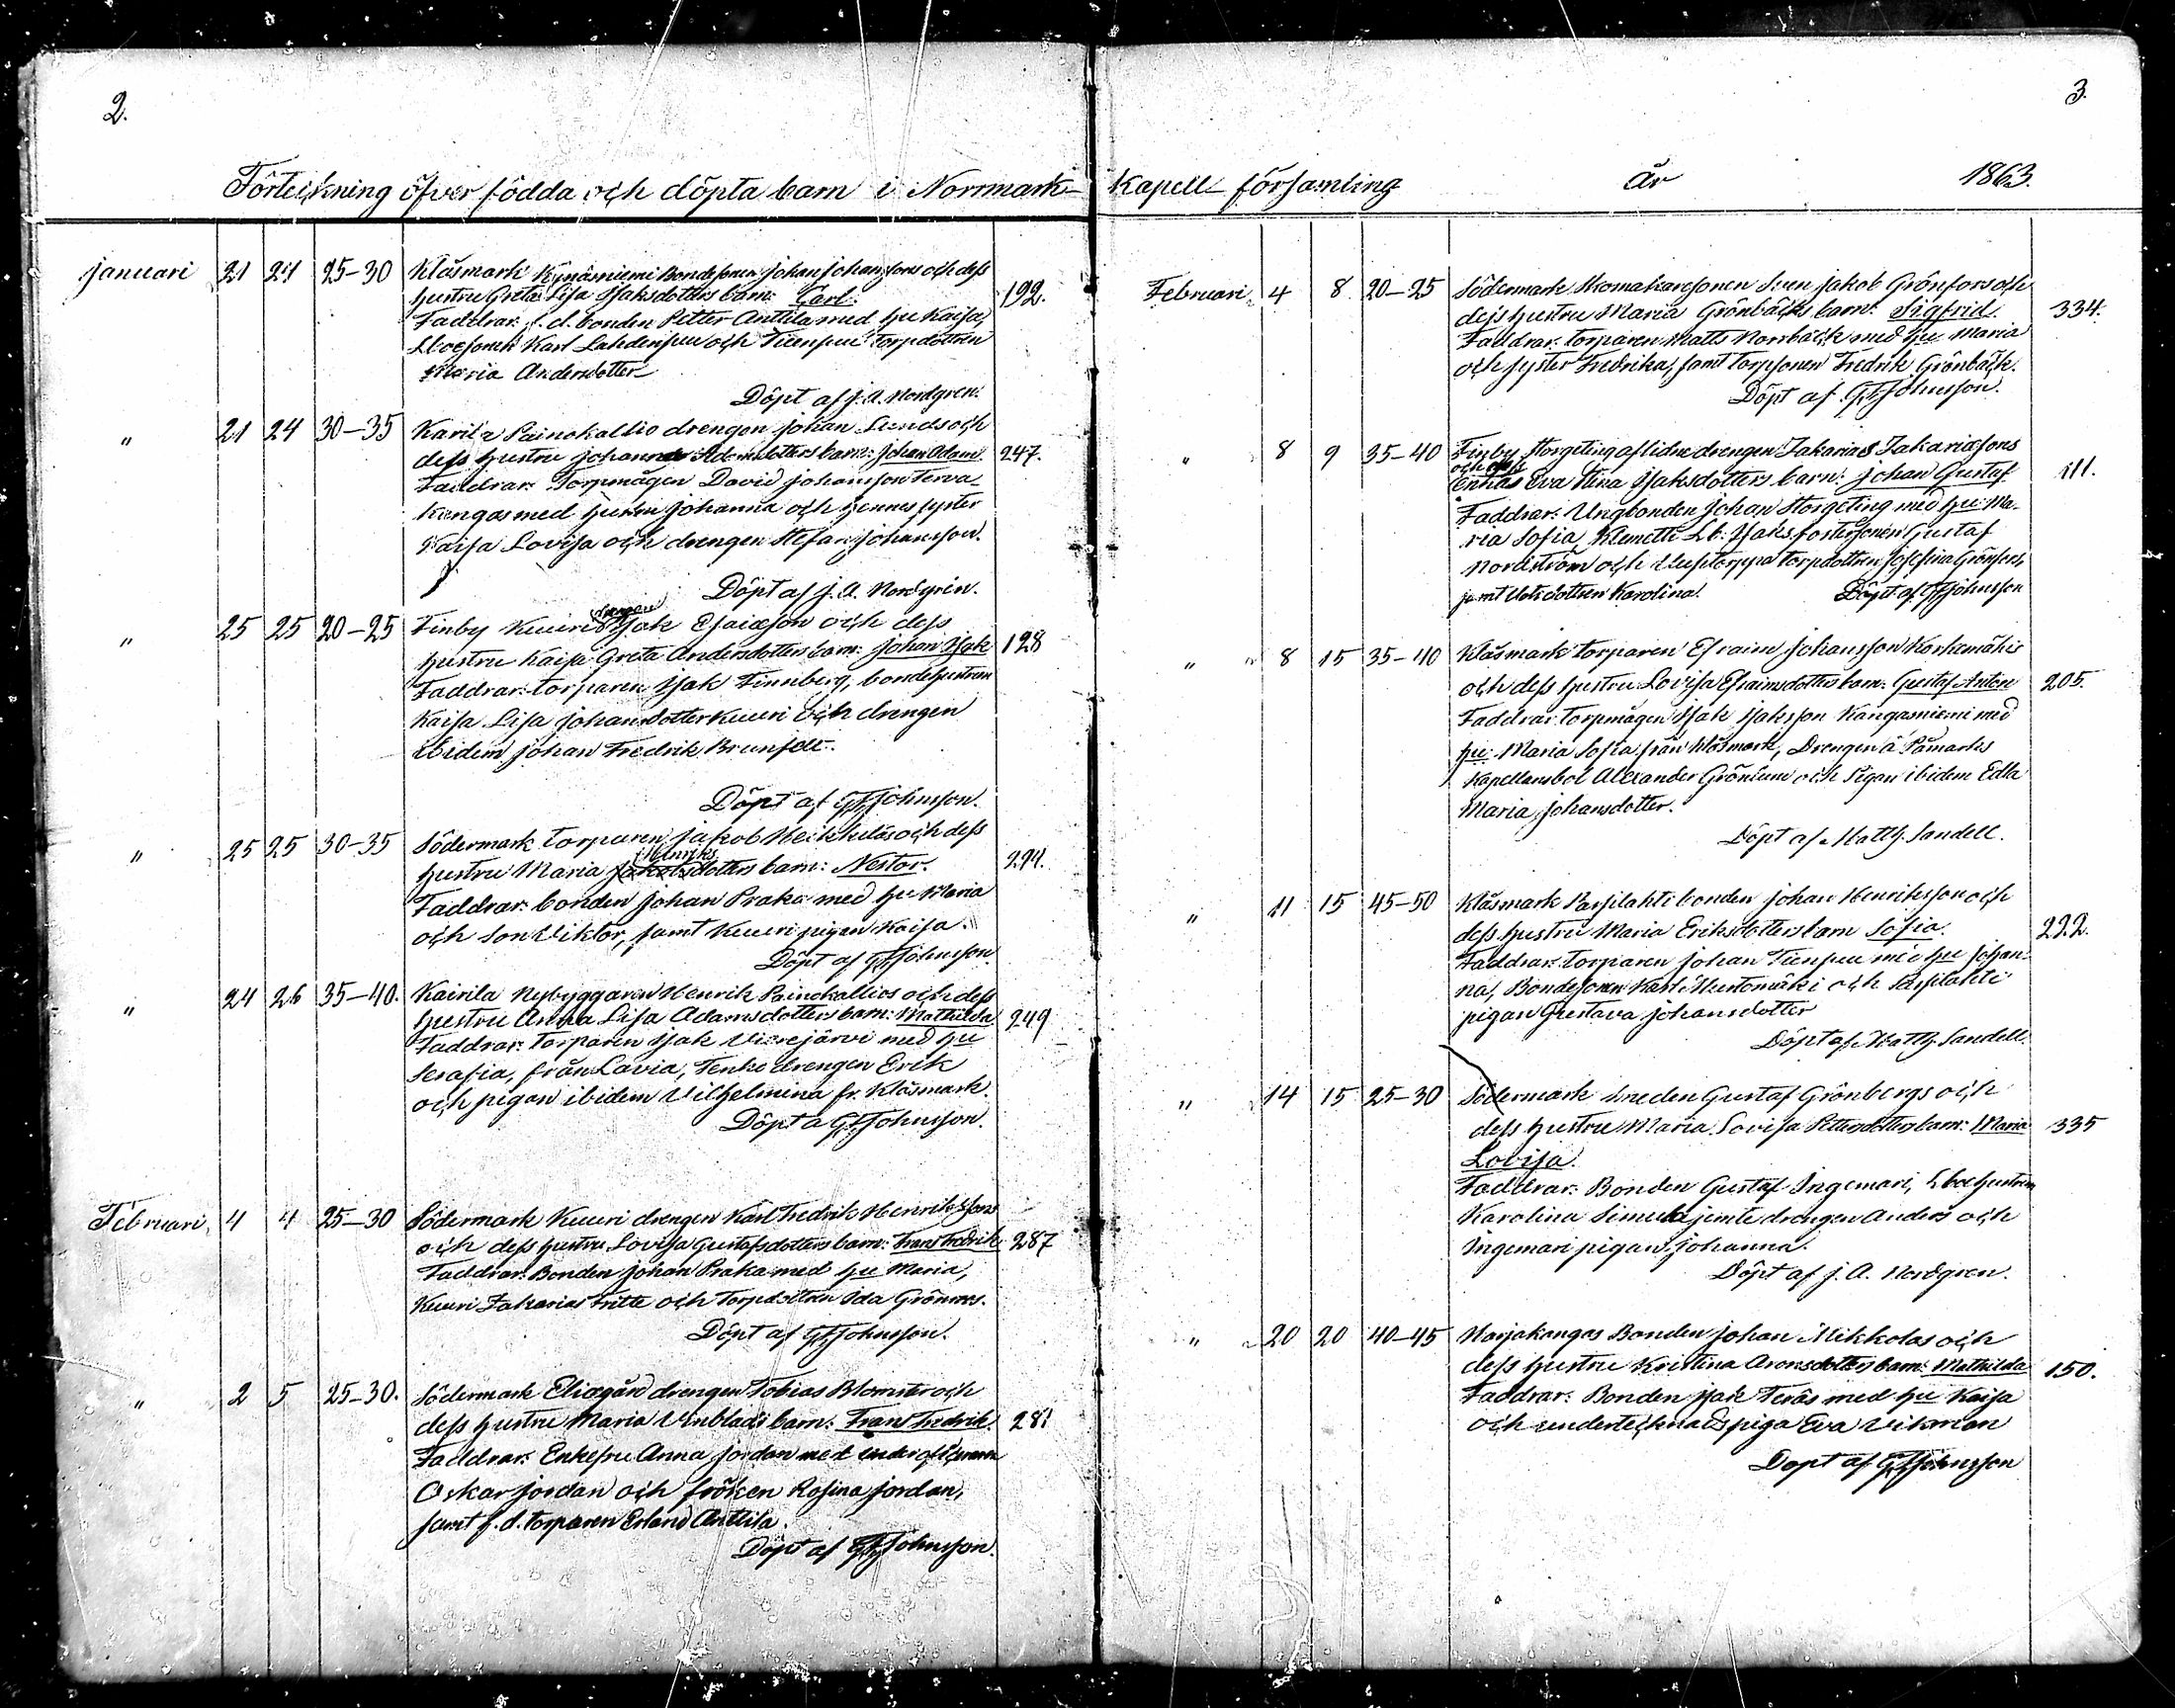 2.
Förteckning öfver födda och döpta barn i Norrmark
januari 21 24 25-30 Klåsmark Kynäsniemi Bondesonen Johan Johanssons och dess
hustru Greta Lisa Isaksdotters barn: Carl. 192.
Faddrar: f. d. bonden Petter Anttila med hu Kaisa,
Karl Lahdenpuu och Tienpuu Torpdottren
Maria Andersdotter
Döpt af J. A. Nordgren.
" 21 24 30-35 Karila Painokallio drengen Johan Lunds och
dess hustru Johanna Adamsdotters barn: Johan Adam 247.
Faddrar: Torpmågen David Johansson Terva
kangas med hustru Johanna och hennes syster
Kaisa Lovisa och drengen Stefan Johansson.
Döpt af J. A. Nordgren.
" 25 25 20-25 Finby Kuuri drengen Isak Esaiasson och dess
hustru Kaisa Greta Andersdotters barn: Johan Isak 128
Faddrar: torparen Isak Finnberg, bondehustrun
Kaisa Lisa Johansdotter Kuuri och drengen
ibidem Johan Fredrik Brunfelt.
Döpt af G. F. Johnsson.
" 25 25 30-35 Södermark torparen Jakob Heikkiläs och dess
hustru Maria Henriks dotters barn: Nestor. 294.
Faddrar: bonden Johan Praka med hu Maria
och son Viktor, samt Kuuri pigan Kaisa.
Döpt af G. F. Johnsson.
" 24 26 35-40. Kairila Nybyggaren Henrik Painokallios och dess
hustru Anna Lisa Adamsdotters barn: Mathilda 249
Faddrar: Torparen Isak Vierejärvi med hu
Serafia, från Lavia, Tenke drengen Erik
och pigan ibidem Vilhelmina fr. Klåsmark.
Döpt a G. F. Johnsson.
Februari 4 4 25-30 Södermark Kuuri drengen Karl Fredrik Henrikssons
och dess hustru Lovisa Gustafsdotters barn: Frans Fredrik 287
Faddrar: Bonden Johan Praka med hu Maria,
Kuuri Zakarias Fritte och Torpdottren Ida Grönroos.
Döpt af G. F. Johnsson.
" 2 5 25-30. Södermark Eliägård drengen Tobias Blomster och
dess hustru Maria Vinblads barn: Frans Fredrik. 281
Faddrar: Enkefru Anna Jordan med underofficeraren
Oskar Jordan och fröken Rosina Jordan,
samt f. d. torparen Erland Anttila.
Döpt af G. F. Johnsson.
3.
Kapell församling år 1863.
Februari 4 8 20-25 Södermark Skomakaresonen Sven Jakob Grönfors och
dess hustru Maria Grönbäcks barn: Sigfrid 334.
Faddrar: torparen Matts Norrbäck med hu Maria
och syster Fredrika, samt torpsonen Fredrik Grönbäck.
Döpt af G. F. Johnsson.
" 8 9 35-40 Finby Storgeting aflidne drengen Zakarias Zakariassons
och dess
Enkas Eva Stina Isaksdotters barn: Johan Gustaf 111.
Faddrar: Ungbonden Johan Storgeting med hu Ma-
ria Sofia, Klemetti Lb: Isaks fostersonen Gustaf
Nordström och torpdottren Josefina Grönfors,
samt dottren Karolina. Döpt af G. F. Johnsson
" 8 15 35-40 Klåsmark torparen Efraim Johansson Korkemäkis
och dess hustru Lovisa Efraimsdotters barn: Gustaf Anton 205.
Faddrar: Torpmågen Isak Isaksson Kangasniemi med
hu Maria Sofia från Klåsmark, Drengen å Påmarks
Kapellansbol Alexander Grönlund och Pigan ibidem Edla
Maria Johansdotter.
Döpt af Matth. Sandell.
" 11 15 45-50 Klåsmark Parsilahti bonden Johan Henriksson och
dess hustru Maria Eriksdotters barn Sofia. 222.
Faddrar: torparen Johan Tienpuu med hu Johan-
na, Bondesonen Karl Mustomäki och Parsilahti
pigan Gustava Johansdotter
Döpt af Matth. Sandell.
" 14 15 25-30 Södermark smeden Gustaf Grönbergs och
dess hustru Maria Lovisa Pettersdotters barn: Maria 335
Lovisa.
Faddrar: Bonden Gustaf Ingemari, hustrun
Karolina Simula jemte drengen Anders och
Ingemari pigan Johanna.
Döpt af J. A. Nordgren.
" 20 20 40-45 Harjakangas Bonden Johan Mikkolas och
dess hustru Kristina Aronsdotters barn: Mathilda 150.
Faddrar: Bonden Isak Teräs med hu Kaisa
och undertecknads piga Eva Vikman
Döpt af G. F. Johnsson